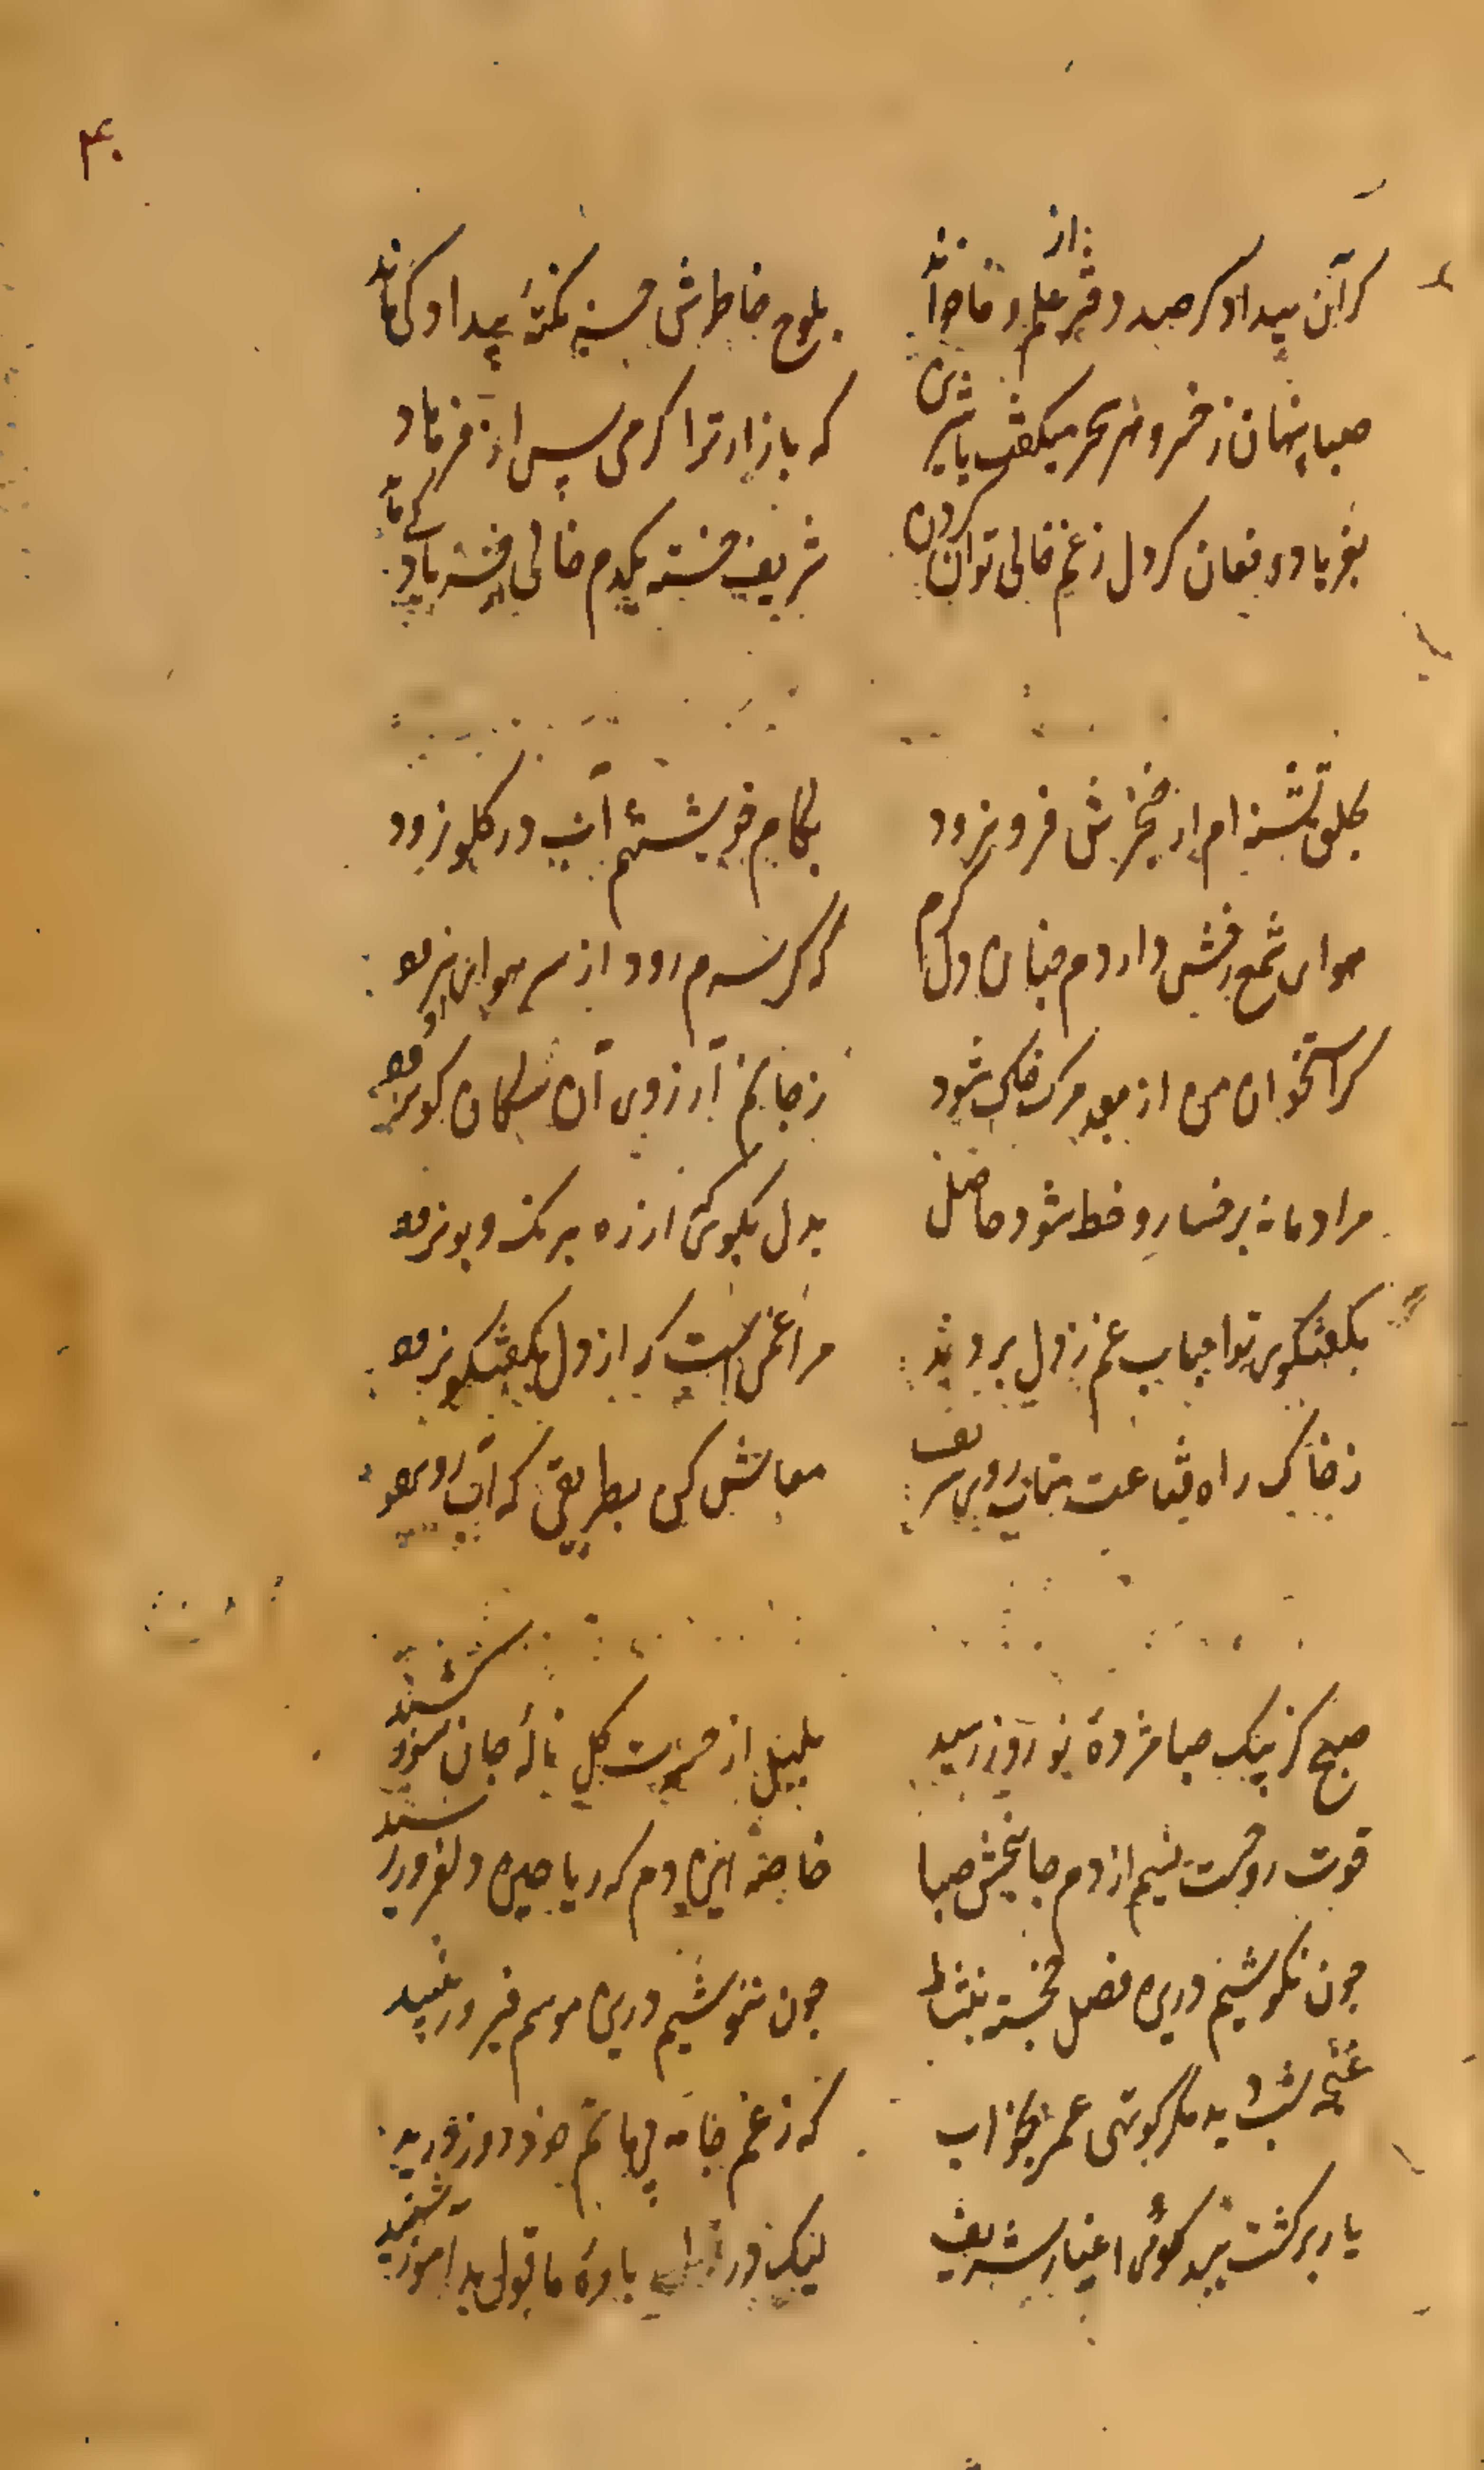 ۴۰
گر آن بیدادگر صد دفتر از علم وفا خواند بلوح خاطرش جز نکتهٔ بیداد کی ماند
صبا پنهان ز خسرو هر سحر میگفت با شیرین که بازار ترا گرمی پس از فرهاد کی ماند
بفریاد و فغان گر دل ز غم خالی توان کردن شریف خسته یکدم خالی از فریاد کی ماند
بحلق تشنه ام از خنجرش فرو نرود بکام خویشتنم آب در گلو نرود
هوای شمع رخش دارد م چنان دل گرم که گر سرم رود از سر هوای او نرود
گر استخوان من از بعد مرگ خاک شود ز جانم آرزوی آن سگان کو نرود
مراد ما نه بر خسار و خط شود حاصل بدل بکوش که این ره برنگ و بو نرود
بگفتگوی تو احباب غم ز دل بردند مرا غمی است که از دل بگفتگو نرود
ز خاک راه قناعت متاب روی شریف معاش کن بطریقی که آب رو نرود
صبح کز پیک صبا مژدهٔ نوروز رسید بلبل از حسرت گل نالهٔ جان سوز کشید
قوت روحست نسیم از دم جانبخش صبا خاصه این دم که ریاحین دلفروز رسید
چون نکوشیم درین فصل خجسته بنشاط چون ننوشیم درین موسم فیروز نبید
غنچه شب دید مگر کوتهی عمر بخواب که ز غم جامهٔ ماتم خود دوز درید
یار برگشت ببدگوئی اغیار شریف لیک در بارهٔ ما قول بدآموز شنید